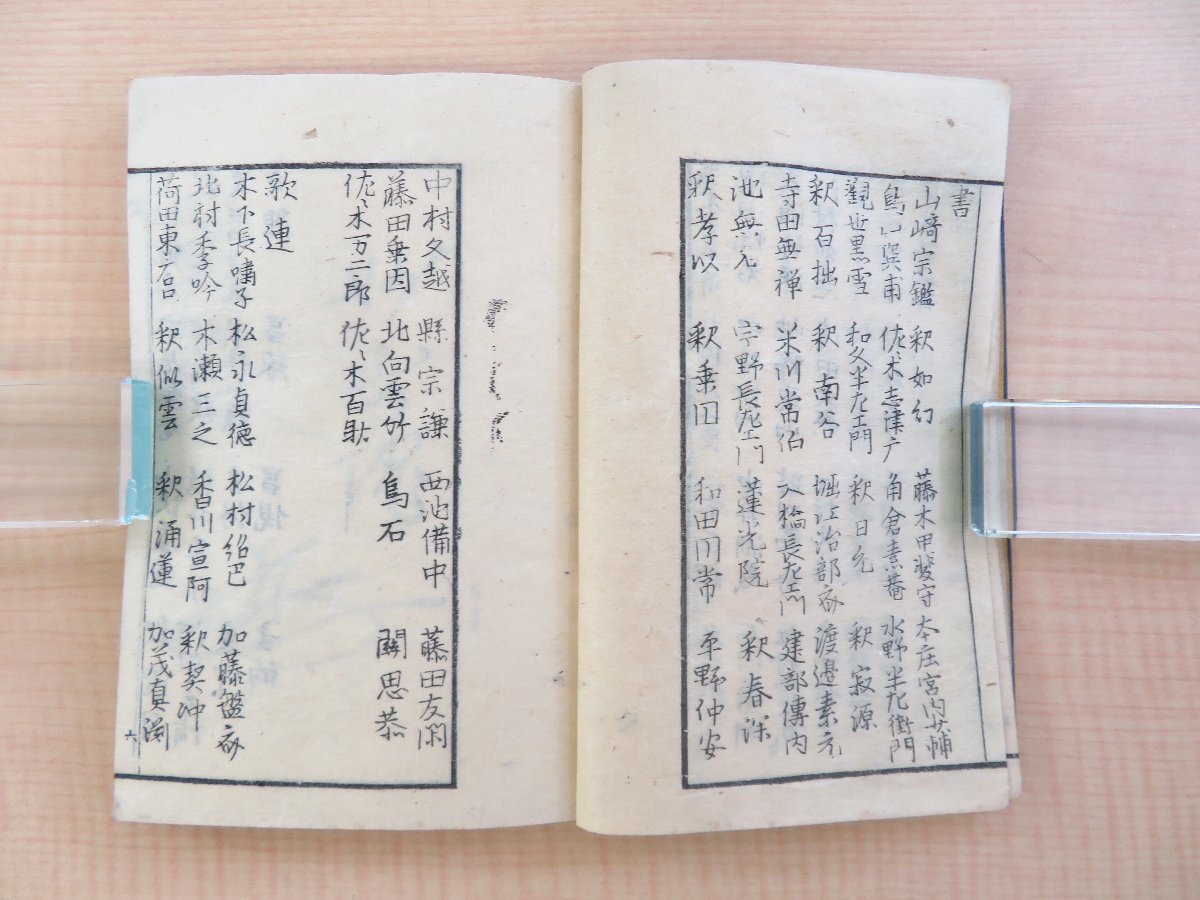 書
山﨑宗鑑 釈如幻 藤木甲斐守 本庄宮内少輔
鳥山巽甫 佐々木志津广 角倉素菴 水野半左衛門
觀世黒雪 和久半左エ門 釈日允 釈寂源
釈石拙 釈南谷 堀江治部 渡邉素元
寺田無禅 米川常伯 大橋長左エ門 建部傳内
池無元 宇野長左エ門 蓮光院 釈春深
釈孝以 釈乗因 和田川常 平野仲安
中村久越 縣宗謙 西池備中 藤田友閑
藤田乗因 北向雲竹 烏石 關思恭
佐々木万二郎 佐々木百助
歌連
木下長嘯子 松永貞徳 松村紹巴 加藤盤斎
北村季吟 木瀬三之 香川宣阿 釈契沖
荷田東 釈似雲 釈涌蓮 加茂真渕
六